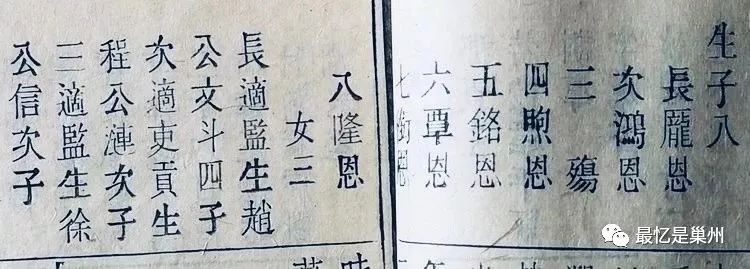 生子八
長龎恩
次鴻恩
三殤
四煦恩
五銘恩
六覃恩
七衔恩
八隆恩
女三
長適監生趙
公文斗四子
次適吏貢生
程公漣次子
三適監生徐
公信次子
最忆是巢州